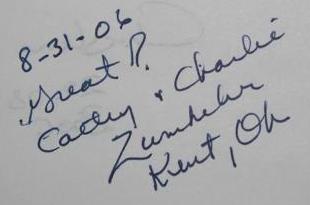 8-31-06
Great P.
Cathy & Charlie
Zumkehr
Kent, Oh